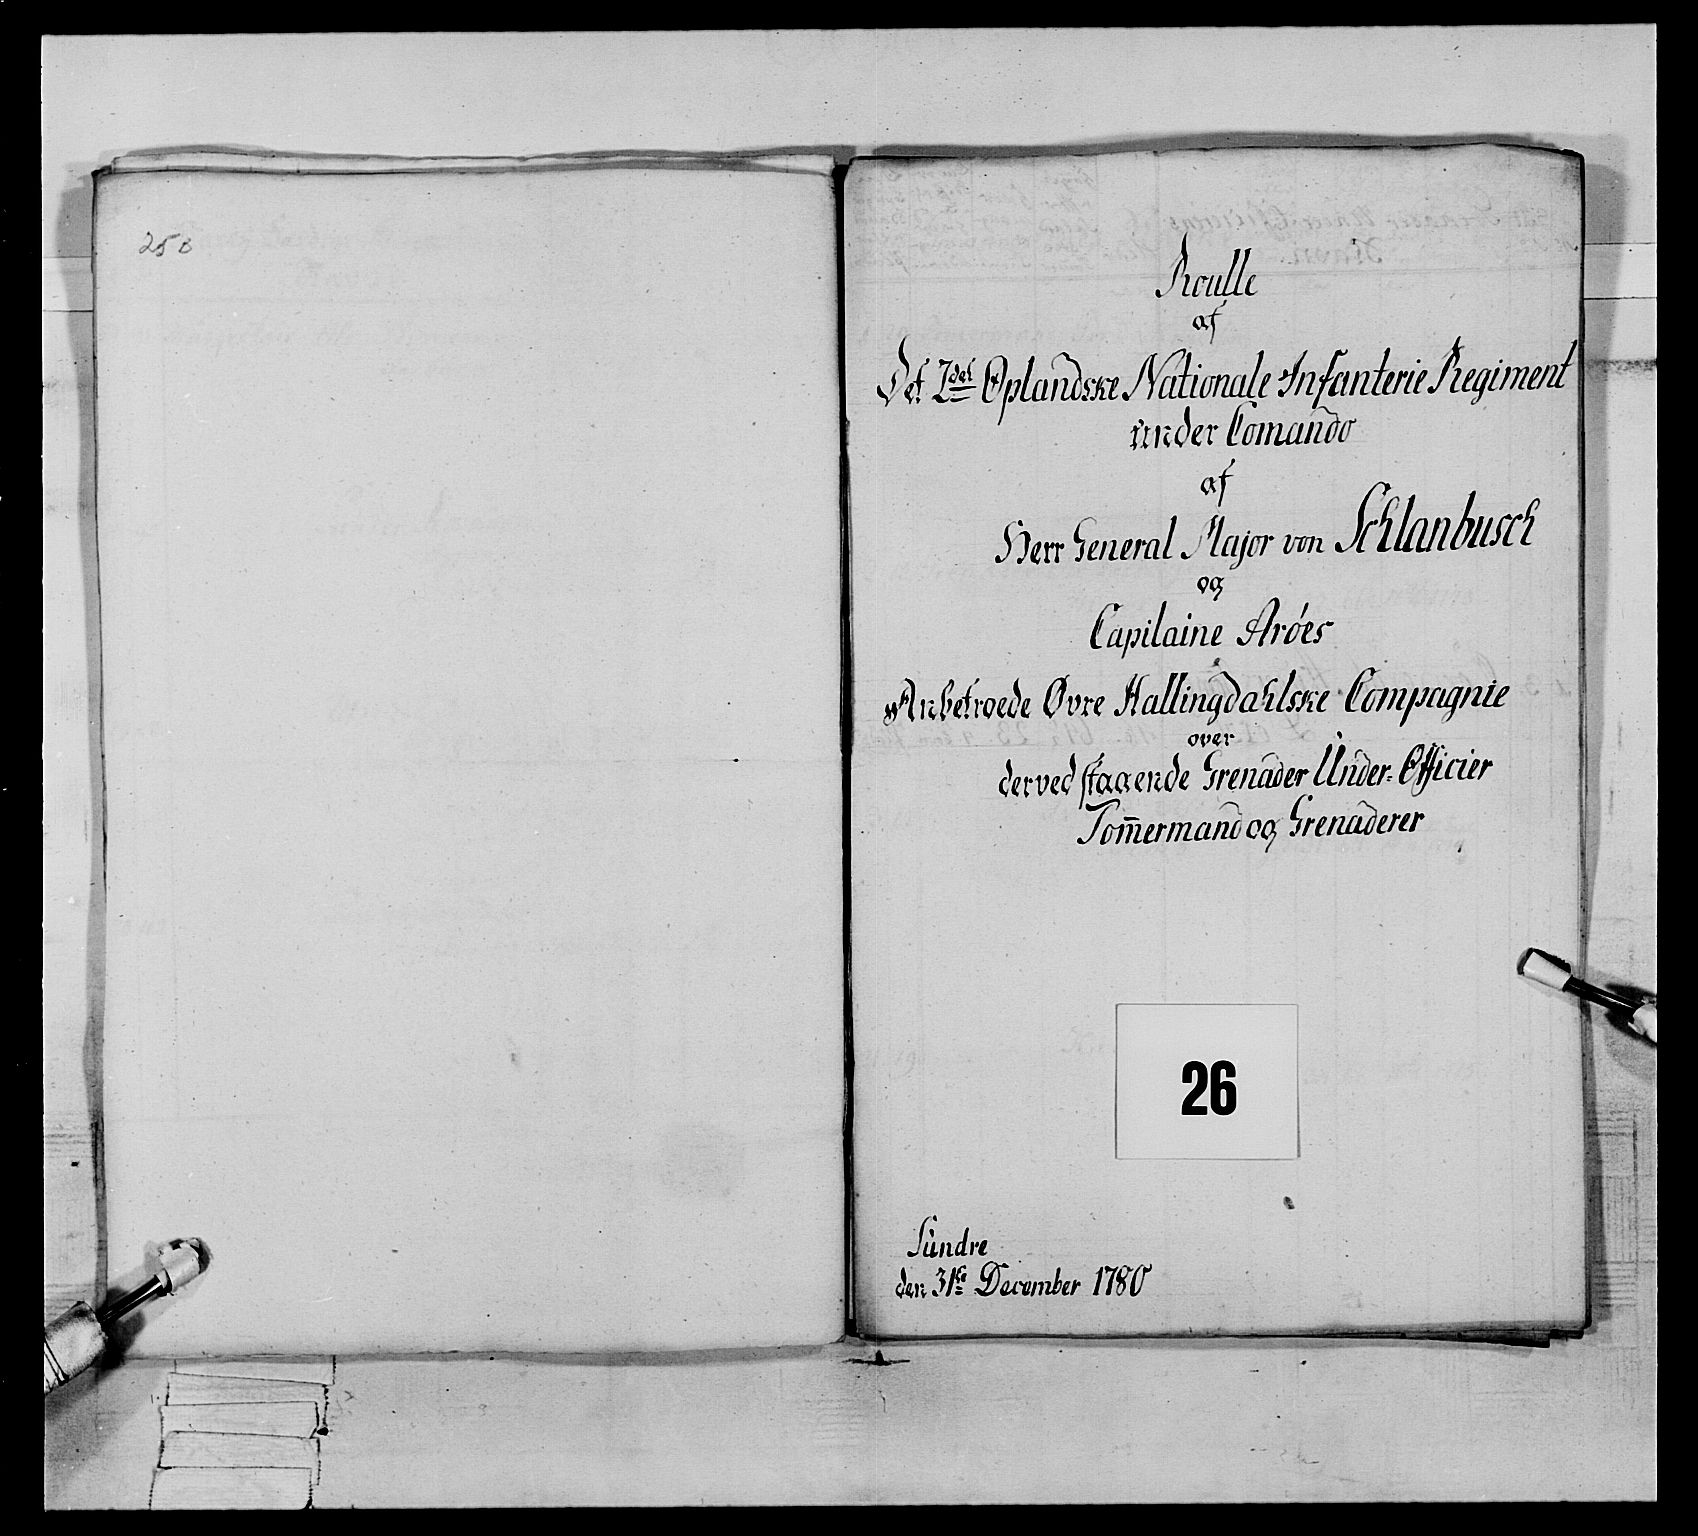 25 b
Roulle
af
Det 2det Oplandske Nationale Infanterie Regiment
under Comando
af
Herr General Major von Schlanbusch
og
Capitaine Aröes
Anbetroede Øvre Hallingdahlske Compagnie
over
derved staaende Grenader Under-Officier
Tom̄ermand og Grenaderer
26
Sundre
den 31te December 1780